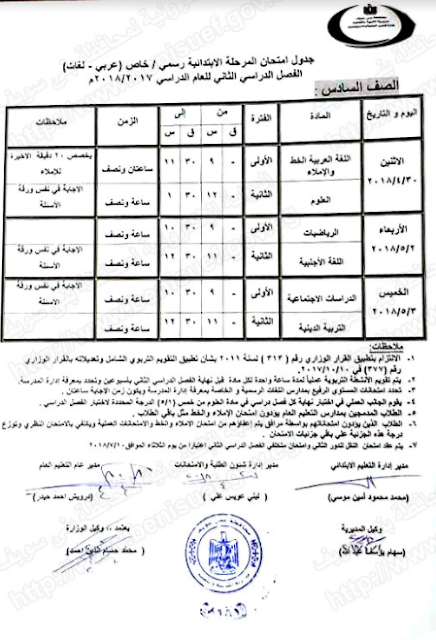 جدول امتحان المرحلة الابتدائية رسمي / خاص (عربي - لغات)
الفصل الدراسي الثاني للعام الدراسي ٢٠١٨/٢٠١٧م
الصف السادس :
اليوم و التاريخ المادة الفترة من إلى الزمن ملاحظات
ق س ق س
الاثنين ٢٠١٨/٤/٣٠ اللغة العربية الخط والإملاء الأولى - ٩ ٣٠ ١١ ساعتان ونصف يخصص ٢٠ دقيقة الاخيرة للإملاء
العلوم الثانية - ١٢ ٣٠ ١ ساعة ونصف الاجابة في نفس ورقة الأسئلة
الأربعاء ٢٠١٨/٥/٢ الرياضيات الأولى - ٩ ٣٠ ١٠ ساعة ونصف
اللغة الأجنبية الثانية - ١١ ٣٠ ١٢ ساعة ونصف الاجابة في نفس ورقة الأسئلة
الخميس ٢٠١٨/٥/٣ الدراسات الاجتماعية الأولى - ٩ ٣٠ ١٠ ساعة ونصف الاجابة في نفس ورقة الأسئلة
التربية الدينية الثانية - ١١ ٣٠ ١٢ ساعة ونصف
ملاحظات:
١- الالتزام بتطبيق القرار الوزاري رقم ( ٣١٣ ) لسنة ٢٠١١ بشأن تطبيق التقويم التربوي الشامل وتعديلاته بالقرار الوزاري
رقم (٣٧٧) في ٢٠١٧/١٠/١٠.
٢- يتم تقويم الأنشطة التربوية عملياً لمدة ساعة واحدة لكل مادة قبل نهاية الفصل الدراسي الثاني بأسبوعين وتحدد بمعرفة إدارة المدرسة.
٣- تحدد امتحانات المستوى الرفيع بمدارس اللغات الرسمية و الخاصة بمعرفة إدارة المدرسة ويكون زمن الإجابة ساعتان.
٤- يقوم الجانب العملي في اختبار نهاية كل فصل دراسي في مادة العلوم من خمس (٥/١) الدرجة المحددة لاختبار الفصل الدراسي.
٥- الطلاب المدمجين بمدارس التعليم العام يؤدون امتحان الإملاء والخط مثل باقي الطلاب.
٦- الطلاب الذين يؤدون امتحاناتهم بواسطة مرافق يتم إعفاؤهم من امتحان الإملاء والخط والامتحانات العملية ويكتفي بالامتحان النظري وتوزع
درجة هذه الجزئية علي باقي جزئيات الامتحان.
٧- يتم عقد امتحان النقل للدور الثاني وامتحان متخلفي الفصل الدراسي الثاني اعتبارا من يوم الثلاثاء الموافق ٢٠١٨/٧/١٠.
مدير إدارة التعليم الابتدائي مدير إدارة شئون الطلبة والامتحانات مدير عام التعليم العام
(محمد محمود أمين موسي) ( لبني عويس علي ) (درويش احمد حيدر)
وكيل المديرية يعتمد ،، وكيل الوزارة
(سهام يوسف عبد الله) ( محمد حسام الدين احمد)